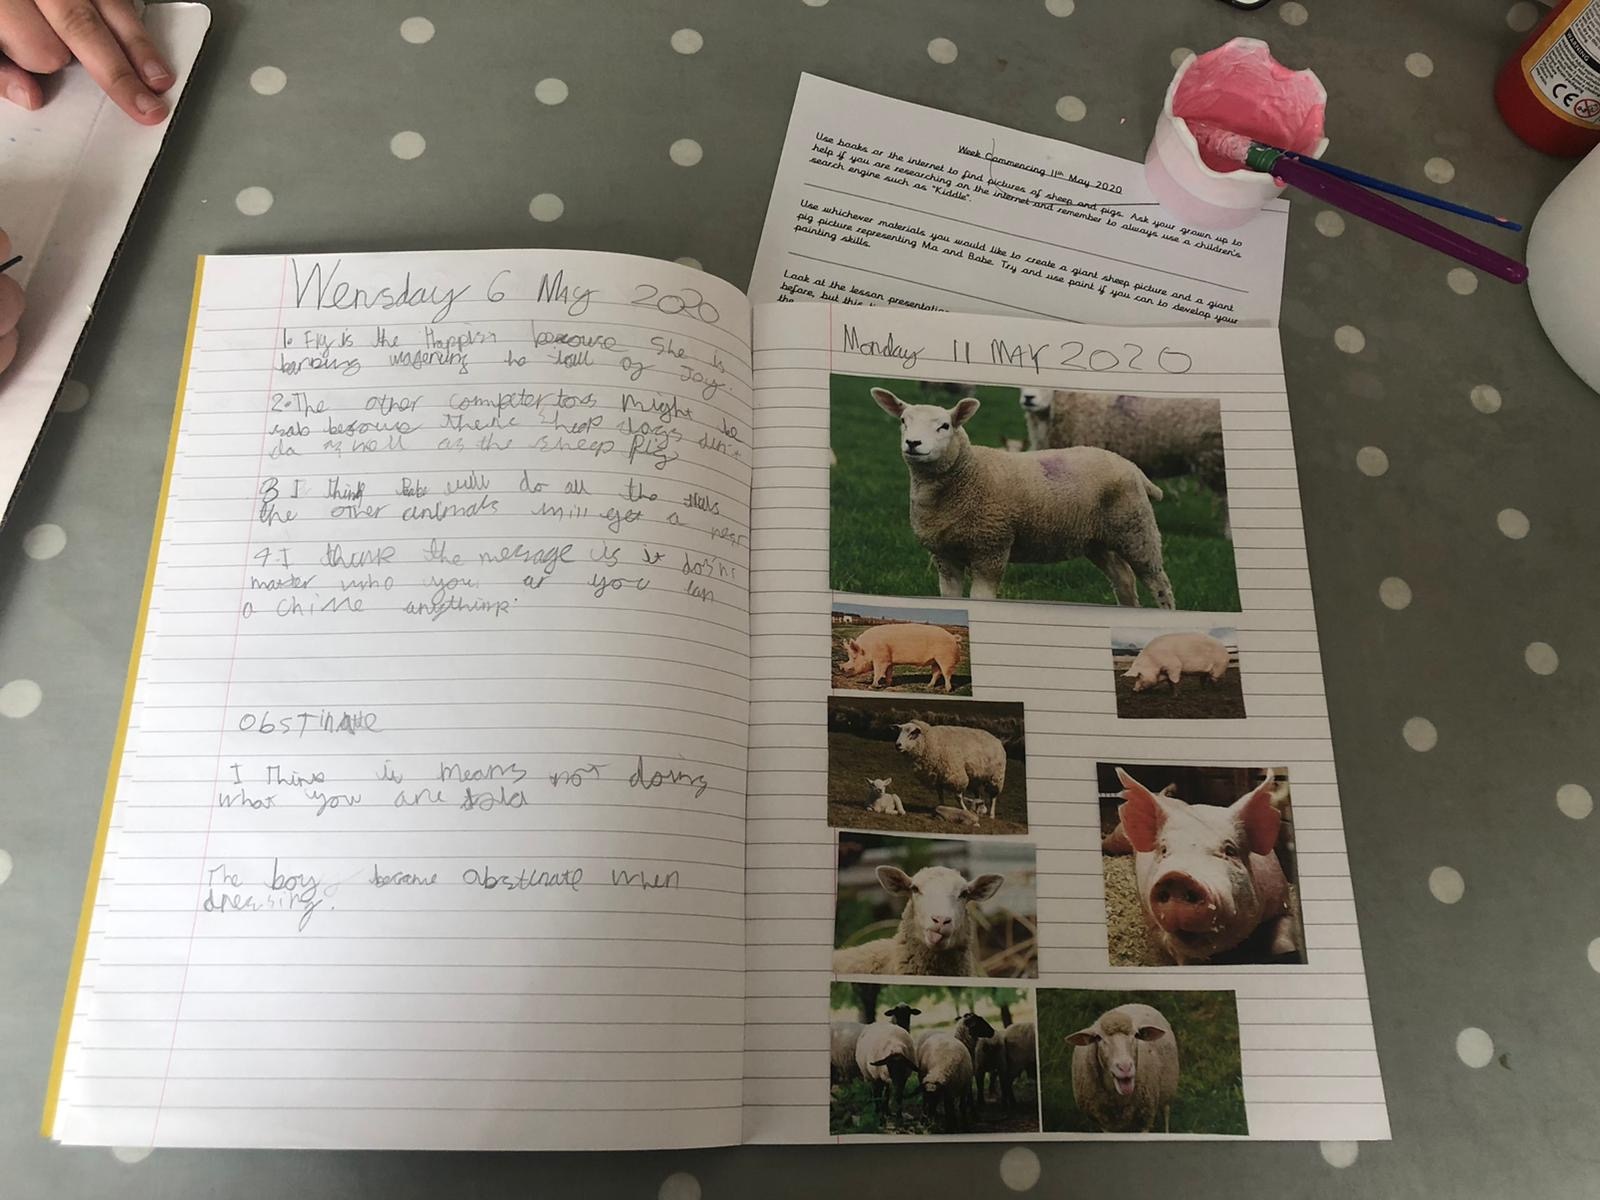 Wensday 6 May 2020
1. Fly is the Happiest because She is
barking wagening he tall of Joy.
2. The other competertors Might be
sab because there sheep dogs din't
do as well as the sheep Pig
3 I Think Babe will do all the trials
the other animals will get a rest
4. I think the message is it dosn't
matter who you ar you can
a chive anything.
Obstinate
I Think it means not doing
what you are told
The boy became obstinate when
dressing.
Week Commencing 11th May 2020
Use books or the internet to find pictures of sheep and pigs. Ask your grown up to
help if you are researching on the internet and remember to always use a children's
search engine such as "Kiddle".
Use whichever materials you would like to create a giant sheep picture and a giant
pig picture representing Ma and Babe. Try and use paint if you can to develop your
painting skills.
Look at the lesson presentation
before, but this
the
Monday 11 MAY 2020
WARNING
CE